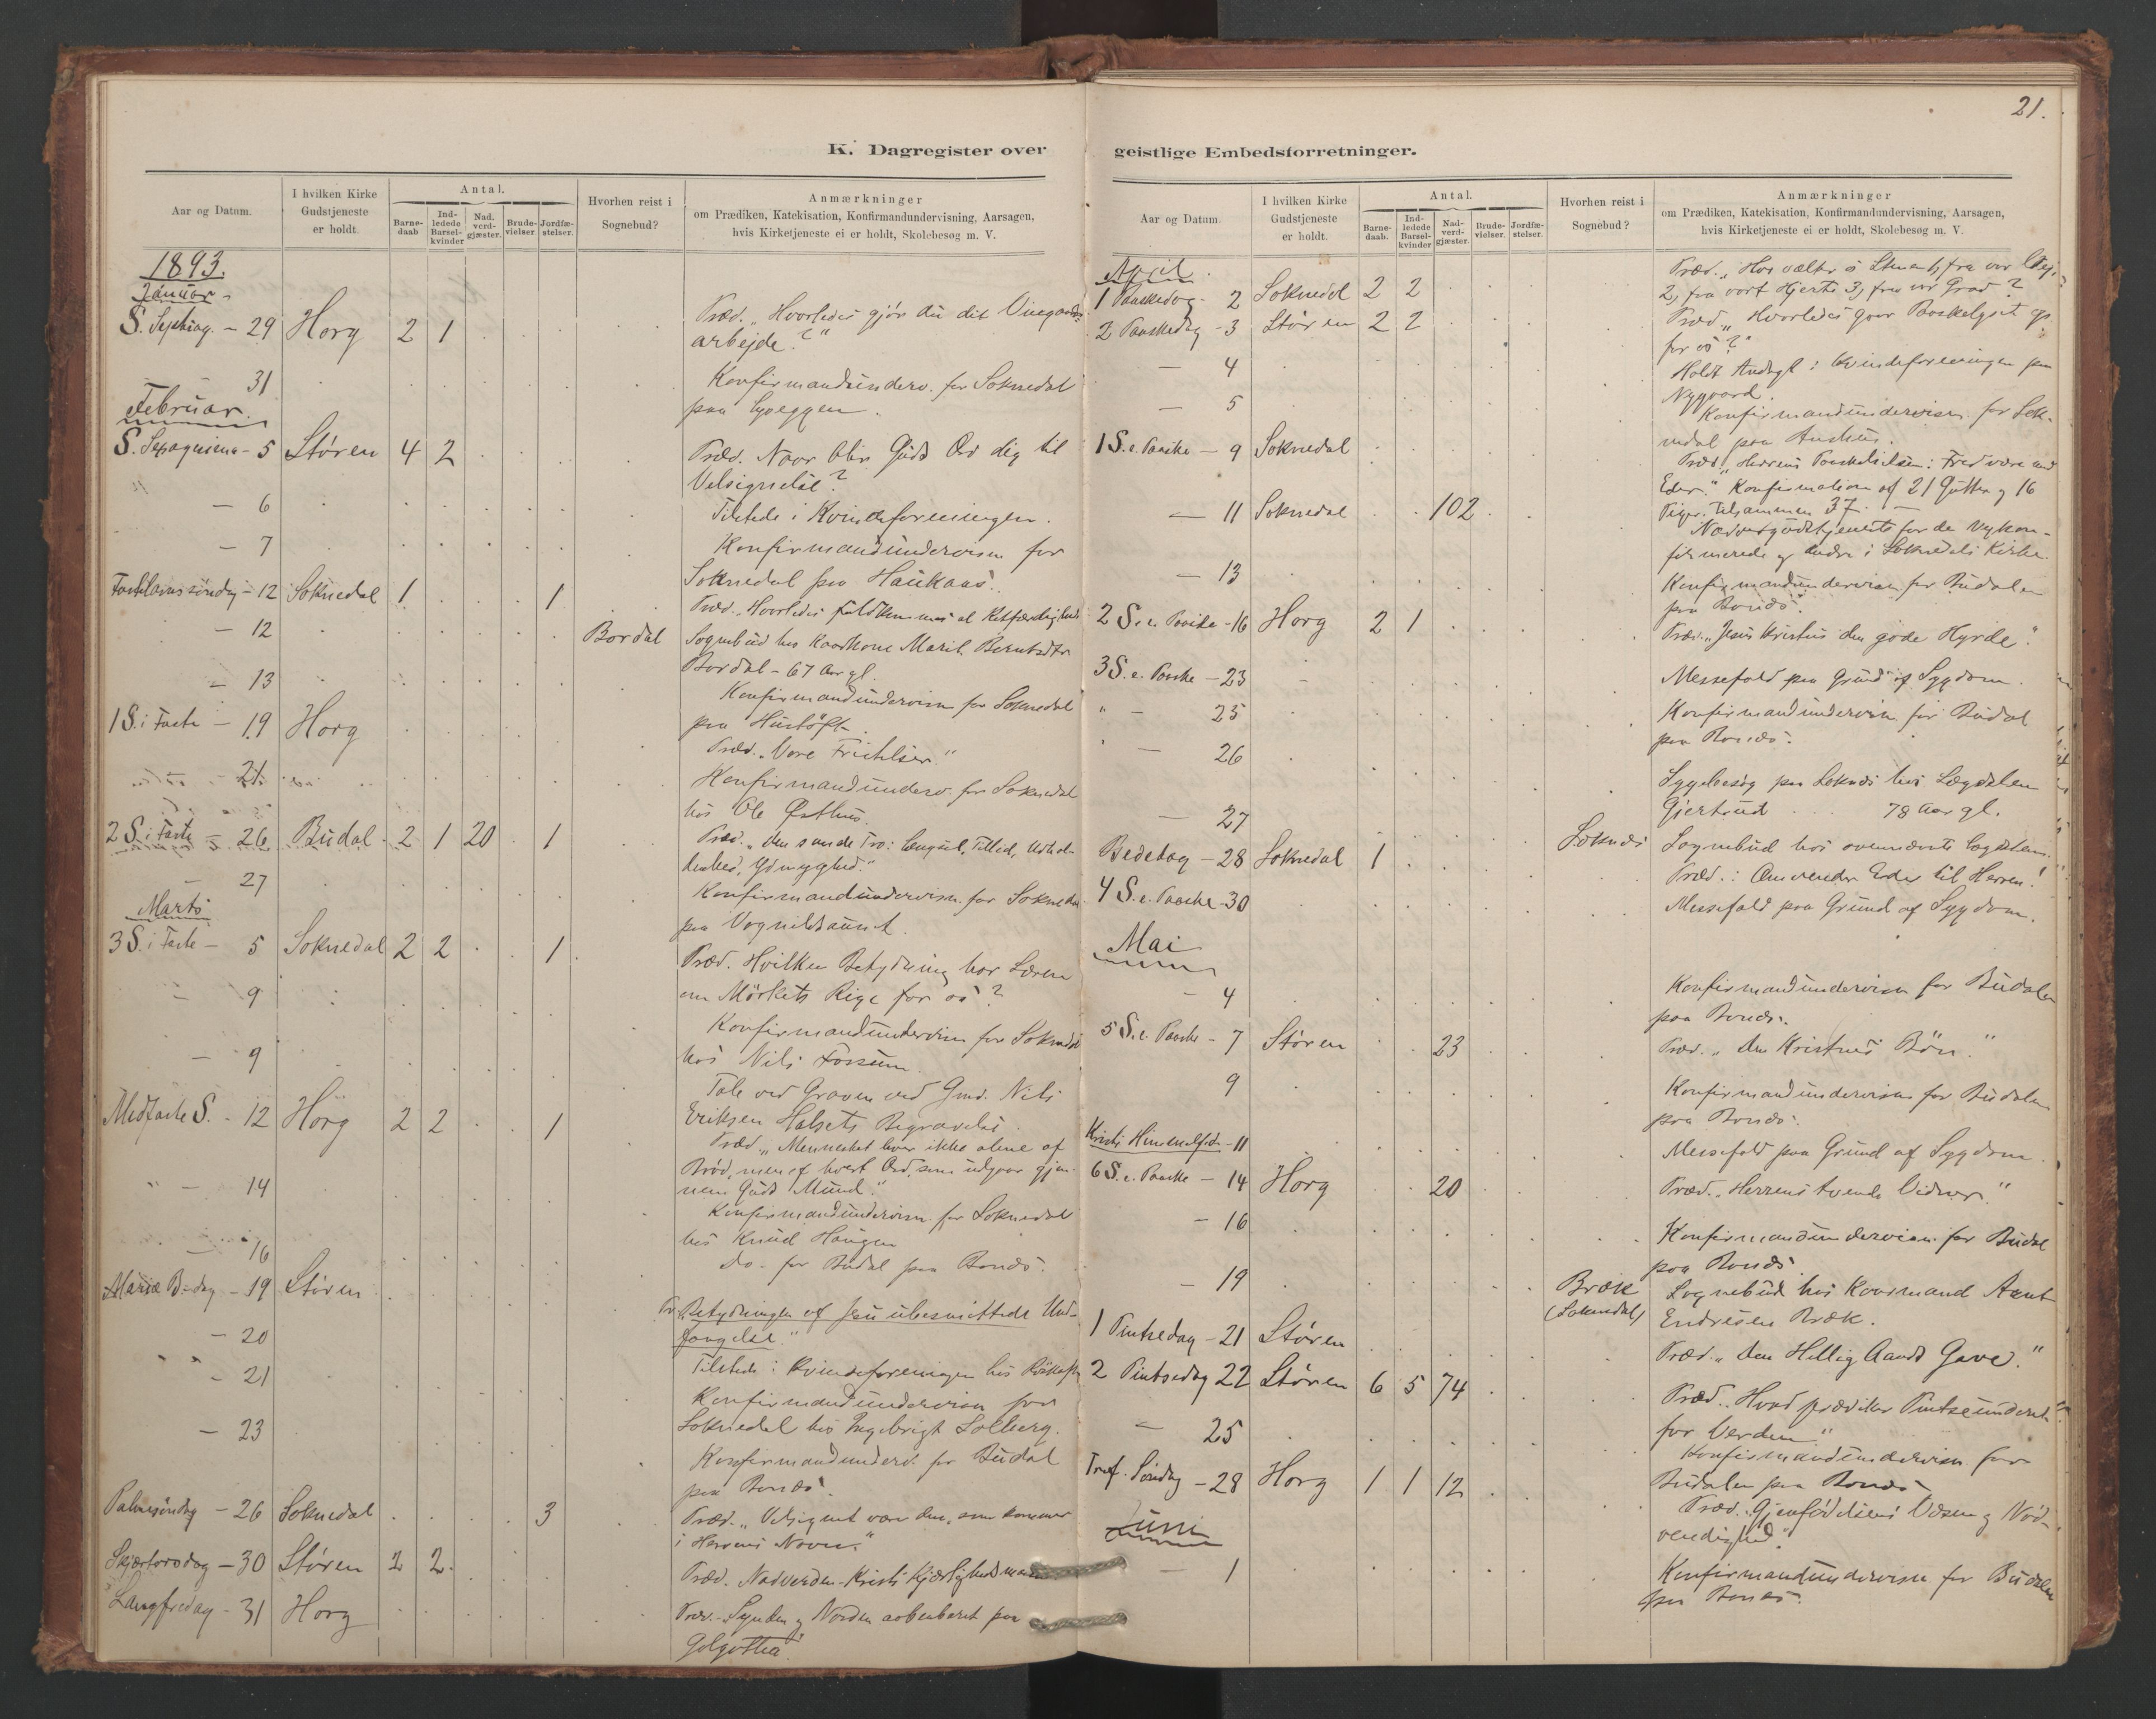 21.
K. Dagregister over
Aar og Datum.
I hvilken Kirke Gudstjeneste er holdt.
Antal.
Barne-daab
Ind-ledede Barsel-kvinder
Nad. verd-gjæster.
Brude-vielser
Jordfæ-stelser.
Hvorhen reist i Sognebud?
Anmærkninger
om Prædiken, Katekisation, Konfirmandundervisning, Aarsagen,
hvis Kirketjeneste ei er holdt, Skolebesøg m. V.
1893.
Januar
S. Septuag. - 29 Horg 2 1 Præd. "Hvorledes gjør du dit Vingaards-
arbejde?"
31 Konfirmandunderv. for Soknedal
paa
Februar.
S. Sexagesima - 5 Støren 4 2 Præd. Naar blir Guds Ord dig til
Velsignelse?
- 6 Tilstede i Kvindeforeningen.
- 7 Konfirmandundervisn for
Soknedal paa Haukaas.
Fastelavns søndag - 12 Soknedal 1 1 Præd. Hvorledes fuldkommes al Retfærdighed
- 12 Bordal Sognebud hos Kaarkone Marit Berntsdtr
Bordal - 67 Aar gl.
- 13 Konfirmandundervisn for Soknedal
paa
1 S. i Faste - 19 Horg Præd. "Vore Fristelser."
- 21. Konfirmandunderv. for Soknedal
hos Ole Østhus.
2 S. i Faste - 26 Budal 2 1 20 1 Præd. "Den sande Tro: Længsel, Tillid, Udhol-
denhed, Ydmyghed."
- 27 Konfirmandundervisn. for Soknedal
paa Vognildsaunet.
Marts
3 S. i Faste - 5 Soknedal 2 2 1 Præd. Hvilken Betydning har Læren
om Mörkets Rige for os?
- 9 Konfirmandundervisn for Soknedal
hos Nils Fossum.
- 9 Tale ved Graven ved Gmd. Nils
Eriksen Halsets Begravelse.
Midfaste S. - 12 Horg 2 2 1 Præd. "Mennesket lever ikke alene af
Brød, men af hvert Ord, som udgaar gjen-
nem Guds Mund."
" - 14 Konfirmandundervisn. for Soknedal
hos Knud Haugen
- 16 Do. for Budal paa Bonæs.
Mariæ B-dag - 19 Støren Pr. "Betydningen af Jesu ubesmittede Und-
fangelse."
- 20 Tilstede i Kvindeforeningen hos
- 21 Konfirmandundervisn for
Soknedal hos Ingebrigt Solberg.
- 23 Konfirmandunderv. for Budal
paa Bonæs.
Palmesöndag - 26 Soknedal 3 Præd. "Velsignet være den, som kommer
i Herrens Navn."
Skjærtorsdag - 30 Støren 2 2 Præd. Nadverden - Kristi Kjærligheds
Langfredag - 31 Horg Præd. - Synden og Naaden aabenbaret paa
Golgatha!
geistlige Embedsforretninger.
Aar og Datum.
I hvilken Kirke Gudstjeneste er holdt.
Antal.
Barne-daab.
Ind-ledede Barsel-kvinder
Nad-verd-gjæster.
Brude-vielser.
Jordfæ-stelser.
Hvorhen reist i Sognebud?
Anmærkninger
om Prædiken, Katekisation, Konfirmandundervisning, Aarsagen,
hvis Kirketjeneste ei er holdt, Skolebesøg m. V.
April.
1 Paaskedag - 2 Soknedal 2 2 Præd. "Hvo vælter os Stenen 1, fra vor Vej,
2, fra vort Hjerte 3, fra vor Grav?
2 Paaskedag - 3 Støren 2 2 Præd. "Hvorledes gaar Paaskelyset op
for os?"
- 4 Holdt Andagt i Kvindeforeningen paa
Nygaard.
- 5 Konfirmandundervisn. for Sok-
nedal paa
1 S. e. Paaske - 9 Soknedal Præd. "Herrens Paaskehilsen: Fred være med
Eder." Konfirmation af 21 Gutter og 16
Piger. Tilsammen 37. -
- 11 Soknedal 102 Nadvergudstjeneste for de nykon-
firmerede og andre i Soknedals Kirke.
- 13 Konfirmandundervisn for Budalen
paa Bonæs.
2 S. e. Paaske - 16 Horg 2 1 Præd. "Jesus Kristus den gode Hyrde."
3 S. e. Paaske - 23 Messefald paa Grund af Sygdom.
" - 25 Konfirmandundervisn. for Budal
paa Bonæs.
- 26 Sygebesøg paa Soknæs hos Lægdslem
Gjertrud 78 Aar gl.
- 27 Soknæs Sognebud hos ovennævnte Lægdslem.
Bededag - 28 Soknedal 1 Præd.: Omvender Eder til Herren!
4 S. e. Paaske - 30 Messefald paa Grund af Sygdom.
Mai
- 4 Konfirmandundervisn for Budalen
paa Bonæs.
5 S. e. Paaske - 7 Støren 23 Præd. "Den Kristnes Bön."
9 Konfirmandundervisn for Budalen
paa Bonæs.
Kristi Himmelfdg - 11 Messefald paa Grund af Sygdom.
6 S. e. Paaske - 14 Horg 20 Præd. "Herrens tvende Vidner."
- 16 Konfirmandundervisn. for Budal
paa Bonæs.
- 19 Bræk (Soknedal) Sognebud hos Kaarmand Arnt
Endresen Bræk.
1 Pintsedag - 21 Støren Præd. "Den Hellig Aands Gave."
2 Pintsedag 22 Støren 6 5 74 Præd. "Hvad prædiker Pintseunderet
for Verden"
- 25 Konfirmandundervisn for
Budalen paa Bonæs
Tref. Söndag - 28 Horg 1 1 12 Præd. "Gjenfödelsens Væsen og Nöd-
vendighed."
Juni
- 1 Konfirmandundervisn for Budalen
paa Bonæs.